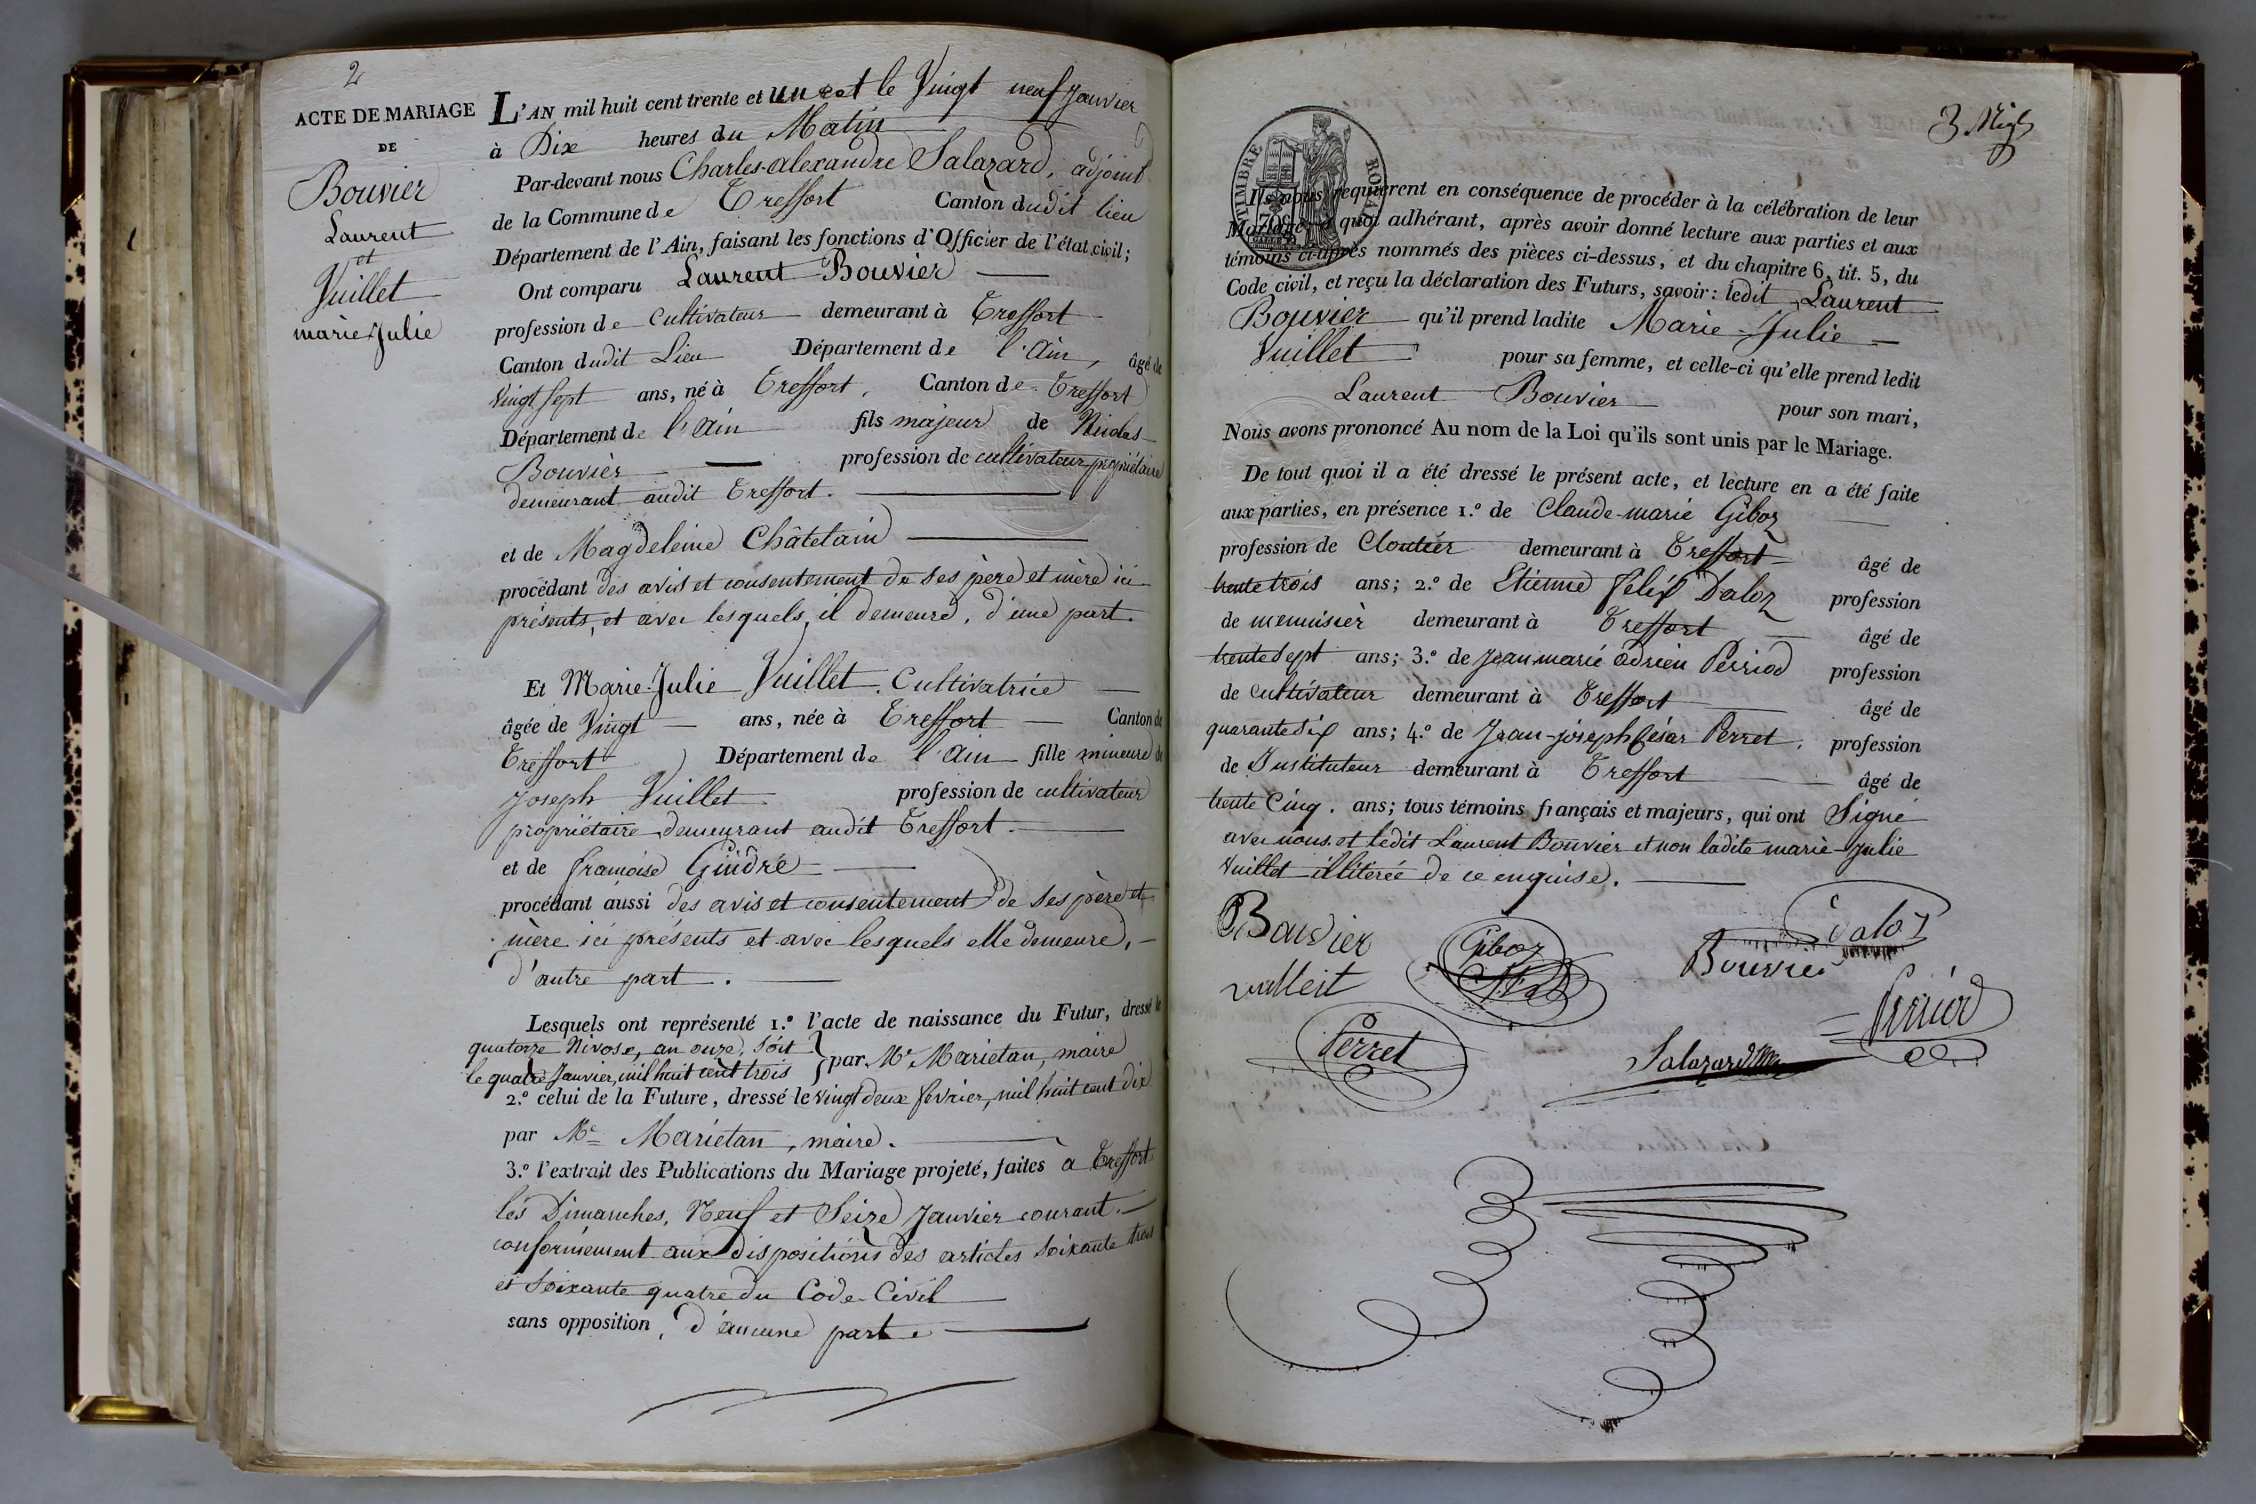 2
ACTE DE MARIAGE
DE
Bouvier
Laurent
et
Vuillet
marie-Julie
L'AN mil huit cent trente et un et le Vingt neuf Janvier
à Dix heures du Matin
Par-devant nous Charles-alexandre Salazard, adjoint
de la Commune de Treffort Canton dudit lieu
Département de l'Ain, faisant les fonctions d'Officier de l'état civil;
Ont comparu Laurent Bouvier
profession de Cultivateur demeurant à Treffort
Canton dudit Lieu Département de l'Ain, âgé de
Vingt sept ans, né à Treffort, Canton de Treffort
Département de l'Ain fils majeur de Nicolas
Bouvier profession de cultivateur propriétaire
demeurant audit Treffort.
et de Magdeleine Châtelain
procédant des avis et consentement de ses père et mère ici
présents, et avec lesquels il demeure, d'une part.
Et Marie-Julie Vuillet. Cultivatrice
âgée de Vingt ans, née à Treffort Canton de
Treffort Département de l'Ain fille mineure de
Joseph Vuillet profession de cultivateur
propriétaire demeurant audit Treffort.
et de françoise Gindre
procédant aussi des avis et consentement de ses père et
mère ici présents et avec lesquels elle demeure,
d'autre part.
Lesquels ont représenté 1.º l'acte de naissance du Futur, dressé le
quatorze Nivose, an onze, soit
le quatre Janvier, mil huit cent trois } par Mr Marietan, maire
2.º celui de la Future, dressé le vingt deux février, mil huit cent dix
par Mr Marietan, maire.
3.º l'extrait des Publications du Mariage projeté, faites à Treffort
les Dimanches, Neuf et Seize Janvier courant.
conformément aux dispositions des articles soixante trois
et soixante quatre du Code Civil
sans opposition, d'aucune part.
3
TIMBRE ROYAL
70c
Ils nous requièrent en conséquence de procéder à la célébration de leur
Mariage, à quoi adhérant, après avoir donné lecture aux parties et aux
témoins ci-après nommés des pièces ci-dessus, et du chapitre 6, tit. 5, du
Code civil, et reçu la déclaration des Futurs, savoir: ledit Laurent
Bouvier qu'il prend ladite Marie-Julie
Vuillet pour sa femme, et celle-ci qu'elle prend ledit
Laurent Bouvier pour son mari,
Nous avons prononcé Au nom de la Loi qu'ils sont unis par le Mariage.
De tout quoi il a été dressé le présent acte, et lecture en a été faite
aux parties, en présence 1.º de Claude-marie Giboz
profession de Cloutier demeurant à Treffort âgé de
trente trois ans; 2.º de Etienne felix Daloz profession
de menuisier demeurant à Treffort âgé de
trente sept ans; 3.º de Jean-marie adrien Perriod profession
de cultivateur demeurant à Treffort âgé de
quarante six ans; 4.º de Jean-joseph César Perret, profession
de Instituteur demeurant à Treffort âgé de
trente Cinq. ans; tous témoins français et majeurs, qui ont Signé
avec nous et ledit Laurent Bouvier et non ladite marie-Julie
Vuillet illitérée de ce enquise.
Bouvier
Giboz
Daloz
Bouvier
Perriod
Perret
Salazard